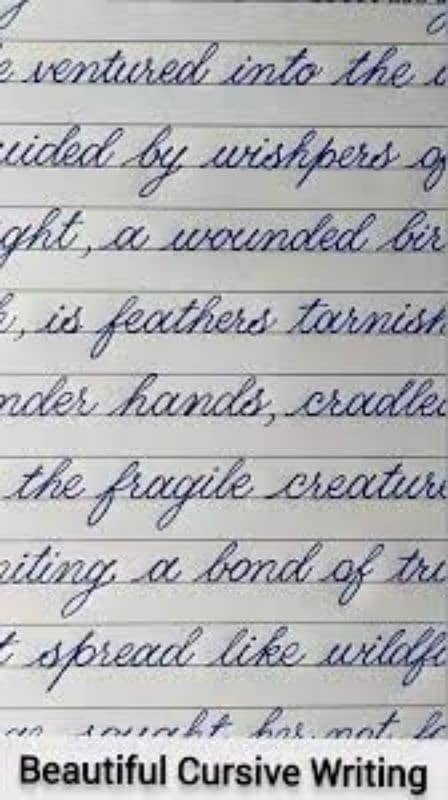 ventured into the
uided by wishpers of
ght, a wounded bir
, is feathers tarnish
nder hands, cradle
the fragile creature
iting a bond of tru
t spread like wildfi
sought her not fo
Beautiful Cursive Writing